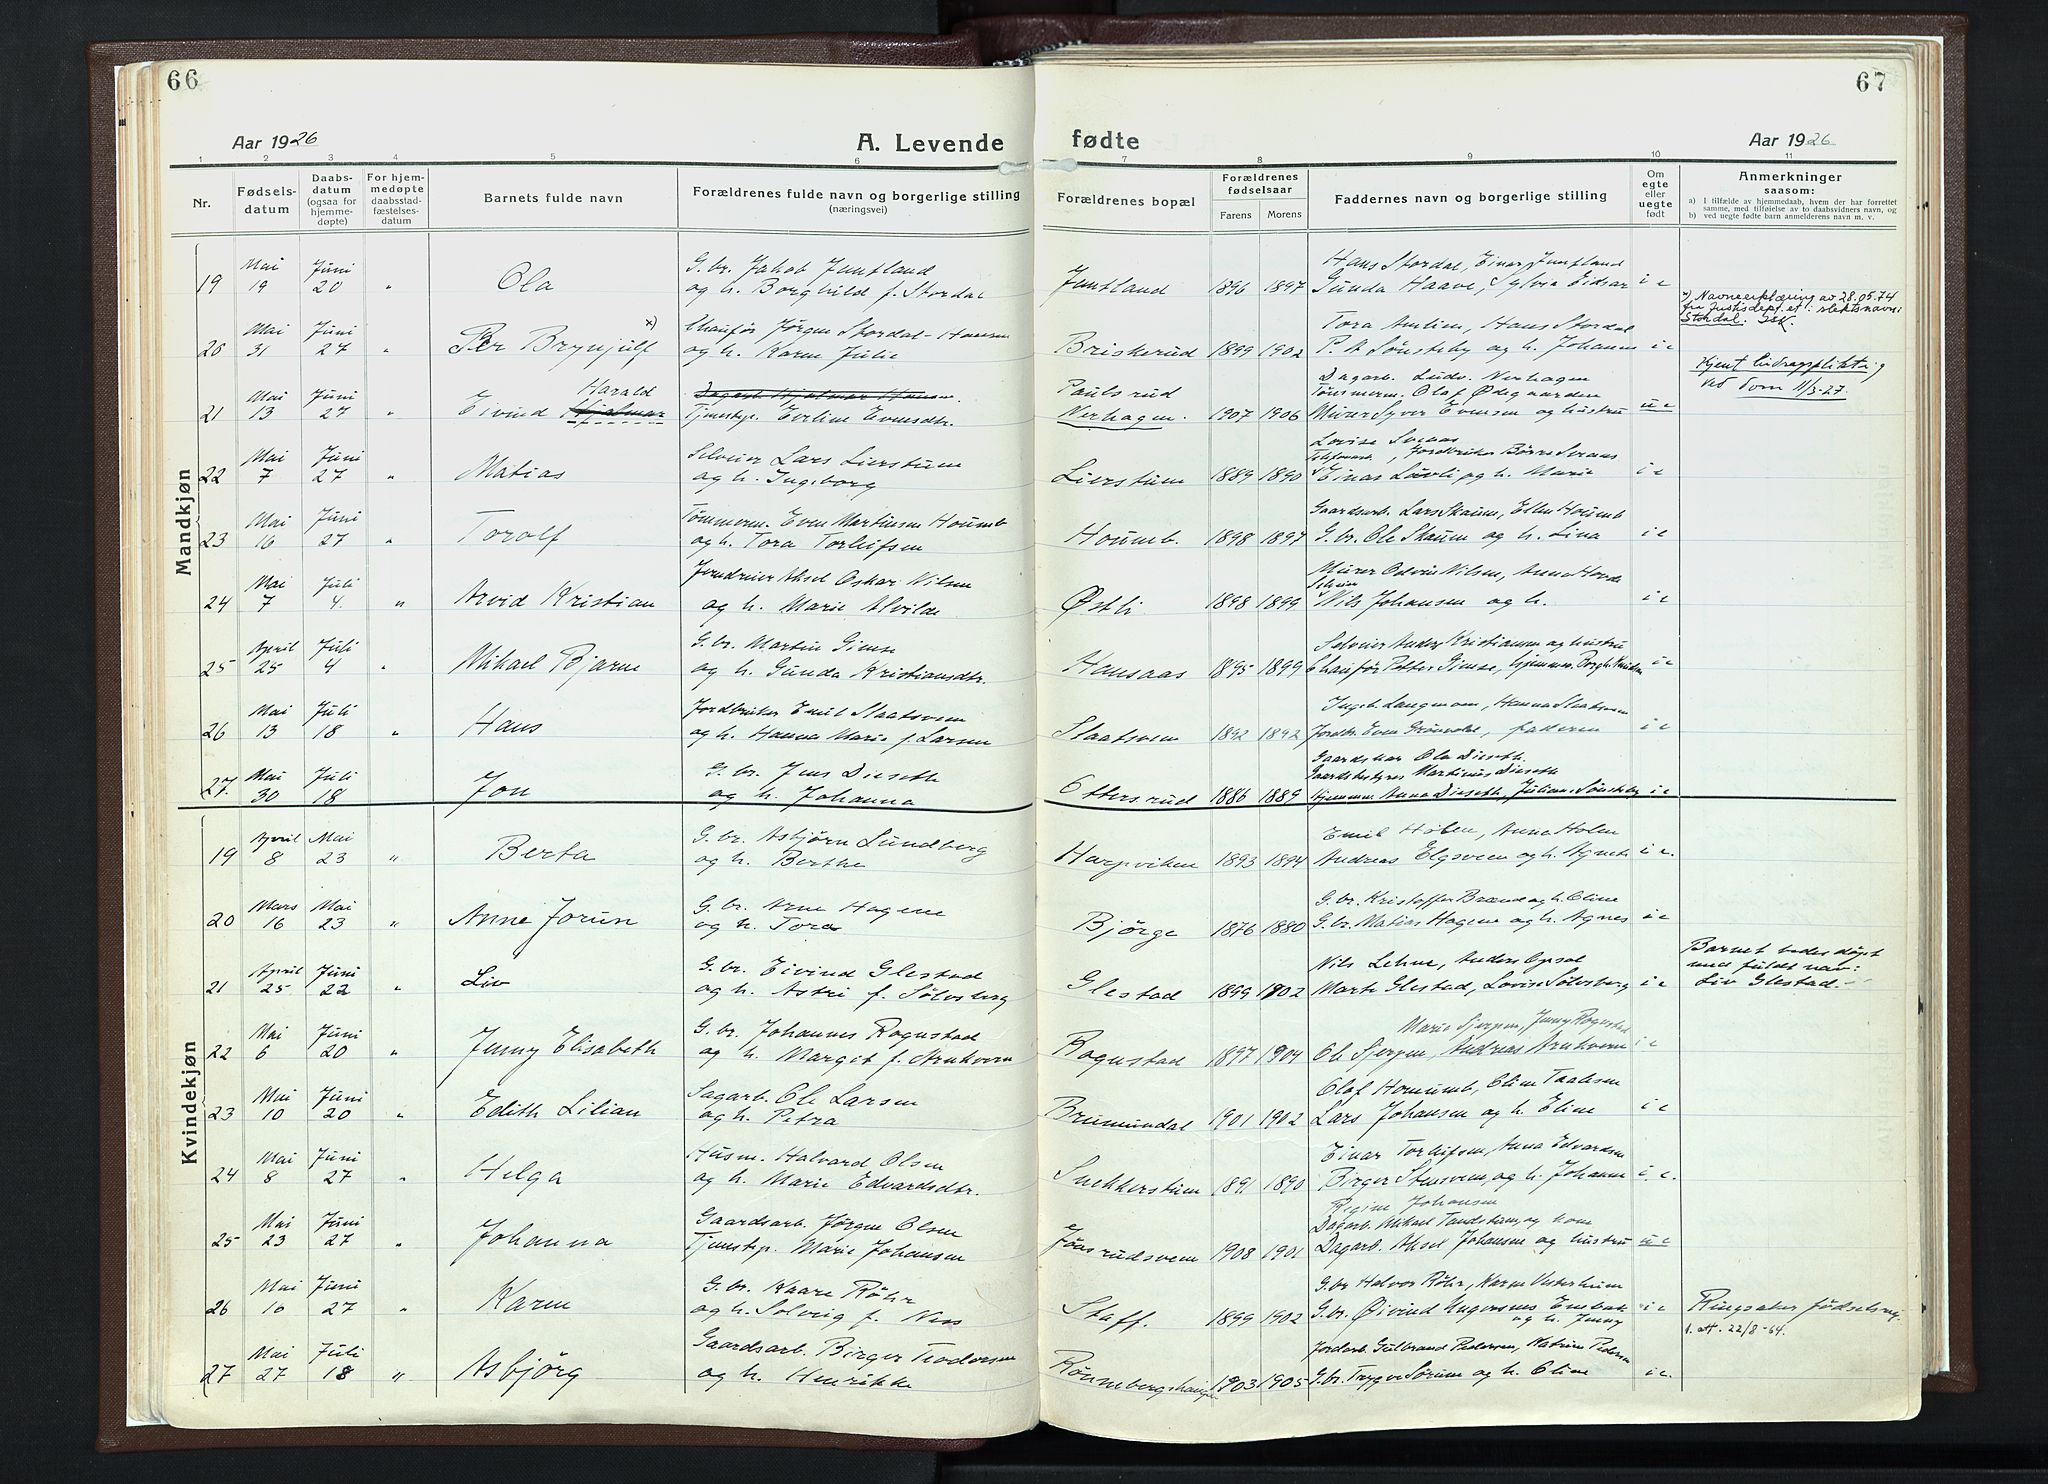 66
67
Aar 1926
A. Levende fødte
Aar 1926
1 2 3 4 5 6 7 8 9 10 11
Nr.
Fødsels-
datum
Daabs-
datum
(ogsaa for
hjemme-
døpte)
For hjem-
medøpte
daabsstad-
fæstelses-
datum
Barnets fulde navn
Forældrenes fulde navn og borgerlige stilling
(næringsvei)
Forældrenes bopæl
Forældrenes
fødselsaar
Farens Morens
Faddernes navn og borgerlige stilling
Om
egte
eller
uegte
født
Anmerkninger
saasom:
a) I tilfælde av hjemmedaab, hvem der har forrettet
samme, med tilføielse av to daabsvidners navn, og
b) ved uegte fødte barn anmelderens navn m. v.
Mandkjøn
Mai Juni G. br. Jakob Hans Stordal, Einar
19 19 20 " Ola og h. Borghild f. Stordal 1896 1897 Gunda Haave, Sylvia i e
x) Navneerklæring av 28.05.74
fra Justisdept. at: slektsnavn:
Stordal.
Mai Juni x) Chaufør Jørgen Stordal-Hansen Tora Hans Stordal
20 31 27 " Per Brynjulf og h. Karen Julie Briskerud 1899 1902 og h. Johanne i e
Kjent bidragspliktig
ved dom 11/3-27.
Mai Juni Harald Dagarb. Hjalmar Hansen Paulsrud Dagarb. Ludv. Nerhagen
Tømmerm. Olaf Ødegaarden
21 13 27 " Eivind Hjalmar Tjenestep. Evensdtr. Nerhagen. 1907 1906 Murer Syver Evensen og hustru u e
Mai Juni Lars Lierstuen Lovise
22 7 27 " Matias og h. Ingeborg Lierstuen 1889 1890 Einar og h. Marie i e
Mai Juni Tømmerm. Even Martinsen Houmb Gaardsarb. Lars Skaun, Ellen Houmb
23 16 27 " Torolf og h. Tora Torleifsen Houmb. 1898 1897 G. br. Ole Skaun og h. Lina i e
Mai Juli Aksel Oskar Nilsen Murer Nilsen, Anna
24 7 4. " Arvid Kristian og h. Marie Alvilde Østli 1898 1899 Nils Johansen og h. i e
April Juli G. br. Martin Gimse Anders Kristiansen og hustru
25 25 4 " Mikael Bjarne og h. Gunda Kristiansdtr. Hansaas 1895 1899 Chaufør Petter Gimse, i e
Mai Juli Jordbruker Emil Slaatsveen Langmoen, Hanna Slaatsveen
26 13 18 " Hans og h. Hanna Marie f. Larsen Slaatsveen 1892 1892 Jordbr. Even faderen i e
Mai Juli G. br. Jens Dieseth Ola Dieseth.
Gaardsbestyrer Martinus Dieseth
27. 30 18 " Jon og h. Johanna Ottersrud 1886 1889 Hjemmev. Anna Dieseth, i e
Kvindekjøn
April Mai G. br. Asbjørn Lundberg Emil Anna Holen
19 8 23 " Berta og h. Berthe Harpviken 1893 1894 Andreas Elgsveen og h. Agnete i e.
Mars Mai G. br. Arne Hagene G. br. Kristoffer og h. Oline
20 16 23 " Anne Jorun og h. Tora Bjørge 1876 1880 G. br. Matias Hagene og h. Agnes i e
April Juni G. br. Eivind Glestad Nils Lehne, Anders Opsal
21 25 22 " Liv og h. Astri f. Sølvsberg Glestad 1899 1902 Marte Glestad, Lovise Sølvsberg i e
Barnet bedes døpt
med fuldt navn:
Liv Glestad.
Mai Juni G. br. Johannes Rognstad Marie Sjergen, Jenny Rognstad
22 6 20 " Jenny Elisabeth og h. Margit f. Arnkvern Rognstad 1897 1904 Ole Sjergen, Andreas Arnkvern i e
Mai Juni Sagarb. Ole Larsen Olaf Houmb, Oline
23 10 20 " Edith Lilian og h. Petra Brumundal 1901 1902 Lars Johansen og h. Eline i e
Mai Juni Husm. Halvard Olsen Einar Torleifsen, Anna Edvardsen
24 8 27 " Helga og h. Marie Edvardsdtr. Snekkerstuen 1891 1890 Birger Stensveen og h. Johanne i e.
Regine Johansen
Mai Juni Gaardsarb. Jørgen Olsen Dagarb. Mikael og kone
25 23 27 " Johanna Tjenestep. Marie Johansen 1908 1901 Dagarb. Aksel Johansen og hustru u e
Mai Juni G. br. Kaare Røhr G. br. Halvor Røhr, Karen
26 10 27 " Karen og h. Solveig f. Ness Staff. 1899 1902 G. br. Øivind og h. Jenny i e
Ringsaker fødselsreg.
1. att. 22/8-64.
Mai Juli Gaardsarb. Birger Teodorsen Jordarb. Gulbrand Pedersen, Katrine Pedersen
27 27 18 " Asbjørg og h. Henrikke 1903 1905 G. br. Trygve Sørum og h. Oline i e.